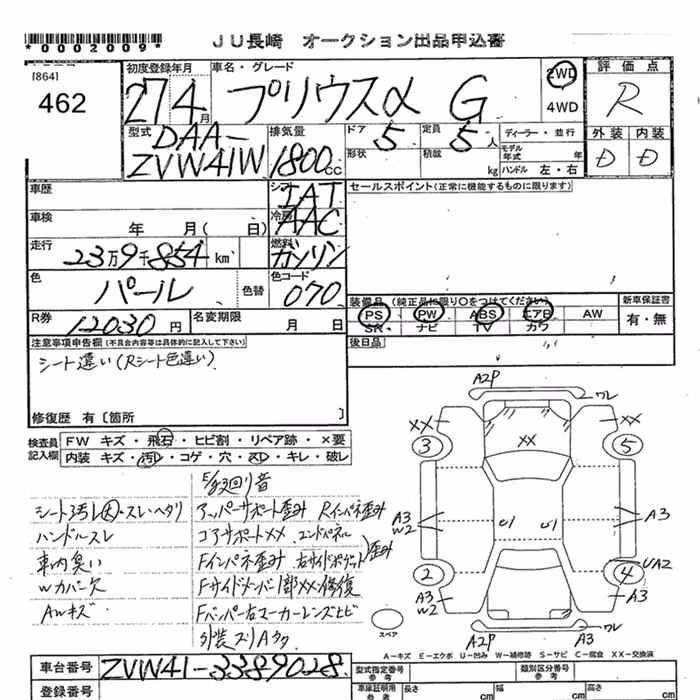 *0002009*
JU長崎 オークション出品申込書
[864]
462
初度登録年月
27 4月
車名・グレード
プリウスα G
2WD
4WD
評価点
R
型式
DAA-
ZVW41W
排気量
1800cc
ドア
5
定員
5人
形状
積載
kg
ディーラー・並行
モデル年式 年
ハンドル 左・右
外装 内装
D D
車歴
シフト
IAT
セールスポイント(正常に機能するものに限ります)
車検
年 月( 日)
冷房
AAC
走行
23万9千854km
燃料
ガソリン
色
パール
色替
色コード
070
装備品 (純正品に限り○をつけてください)
新車保証書
PS PW ABS エアB AW
SR ナビ TV カワ
有・無
R券
12030円
名変期限
月 日
後日品
注意事項申告欄(不具合内容等は具体的に記入して下さい)
シート違い(Rシート色違い)
修復歴 有〔箇所 〕
検査員記入欄
FW キズ・飛石・ヒビ割・リペア跡・×要
内装 キズ・汚れ・コゲ・穴・スレ・キレ・破レ
E/g廻り音
シート3汚レ大・スレ・ヘタリ
アッパーサポート歪み Rインパネ歪み
ハンドルスレ
コアサポートXX エンドパネル
車内臭い
Fインパネ歪み 右サイドポケット)歪み
Wカバー欠
Fサイドメンバー1部XX・修復
AWキズ
Fバンパー右マーカーレンズヒビ
外装スリAタタ
A2P
ワレ
XX
XX
XX
3
5
A3
W2
U1
U1
A3
2
4
UA2
A3
W2
A3
A2P
A3
ワレ
スペア
A-キズ E-エクボ U-凹み W-補修跡 S-サビ C-腐食 XX-交換済
車台番号
ZVW41-3389028
型式指定番号
参考
類別区分番号
参考
登録番号
車庫証明用
参考
長さ
cm
幅
cm
高さ
cm